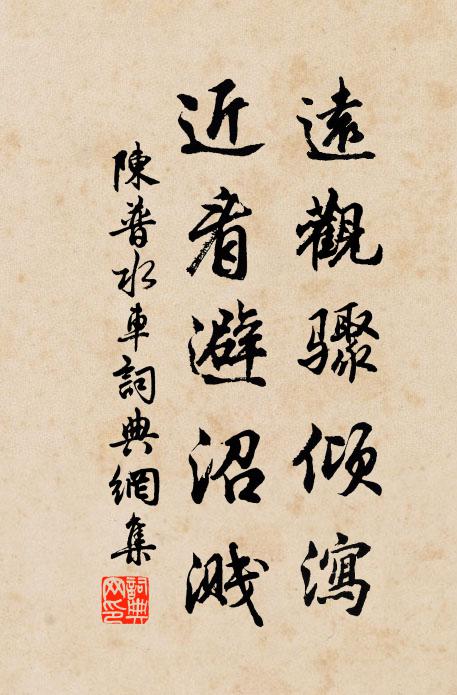 遠觀驟傾瀉
近看避沼濺
陳普水車詞典網集
詞典網印